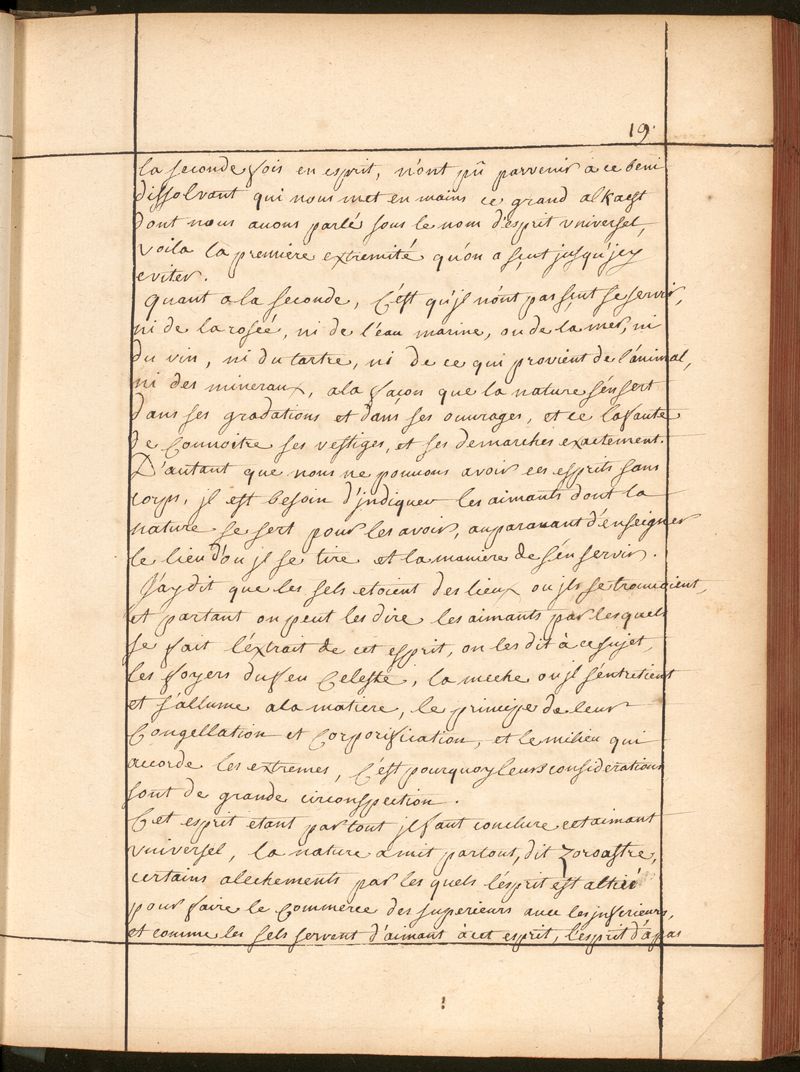 19.
la seconde fois en esprit, n'ont pû parvenir a ce beni
dissolvant qui nous met en mains ce grand alkaest
dont nous auons parlé sous le nom d'esprit vniversel,
voila la premiere extremité qu'on a sçut jusqu'jcy
eviter.
quant a la seconde, c'est qu'jls n'ont pas sçut se servir,
ni de la rosée, ni de l'eau marine, ou de la mer, ni
du vin, ni du tartre, ni de ce qui provient de l'animal,
ni des mineraux, a la façon que la nature s'en sert
dans ses gradations et dans ses ouvrages, et ce la faute
de connoitre ses vestiges, et ses demarches exactement.
D'autant que nous ne pouuons avoir ces esprits sans
corps, jl est besoin d'jndiquer les aimants dont la
nature se sert pour les avoir, auparauant d'enseigner
le lieu d'ou jl se tire et la maniere de s'en servir.
J'ay dit que les sels etoient des lieux ou jls se trouuoient,
et partant on peut les dire les aimants par lesquels
se fait l'extrait de cet esprit, on les dit à ce sujet,
les foyers du feu celeste, la meche ou jl s'entretient
et s'allume a la matiere, le principe de leur
congellation et corporification, et le milieu qui
accorde les extremes, c'est pourquoy leurs considerations
sont de grande circonspection.
Cet esprit etant partout jl faut conclure cet aimant
vniversel, la nature a mit partout, dit Zoroastre,
certains alechements par les quels l'esprit est attiré
pour faire le commerce des superieurs auec les jnferieurs,
et comme les sels servent d'aimant à cet esprit, l'esprit d'apas